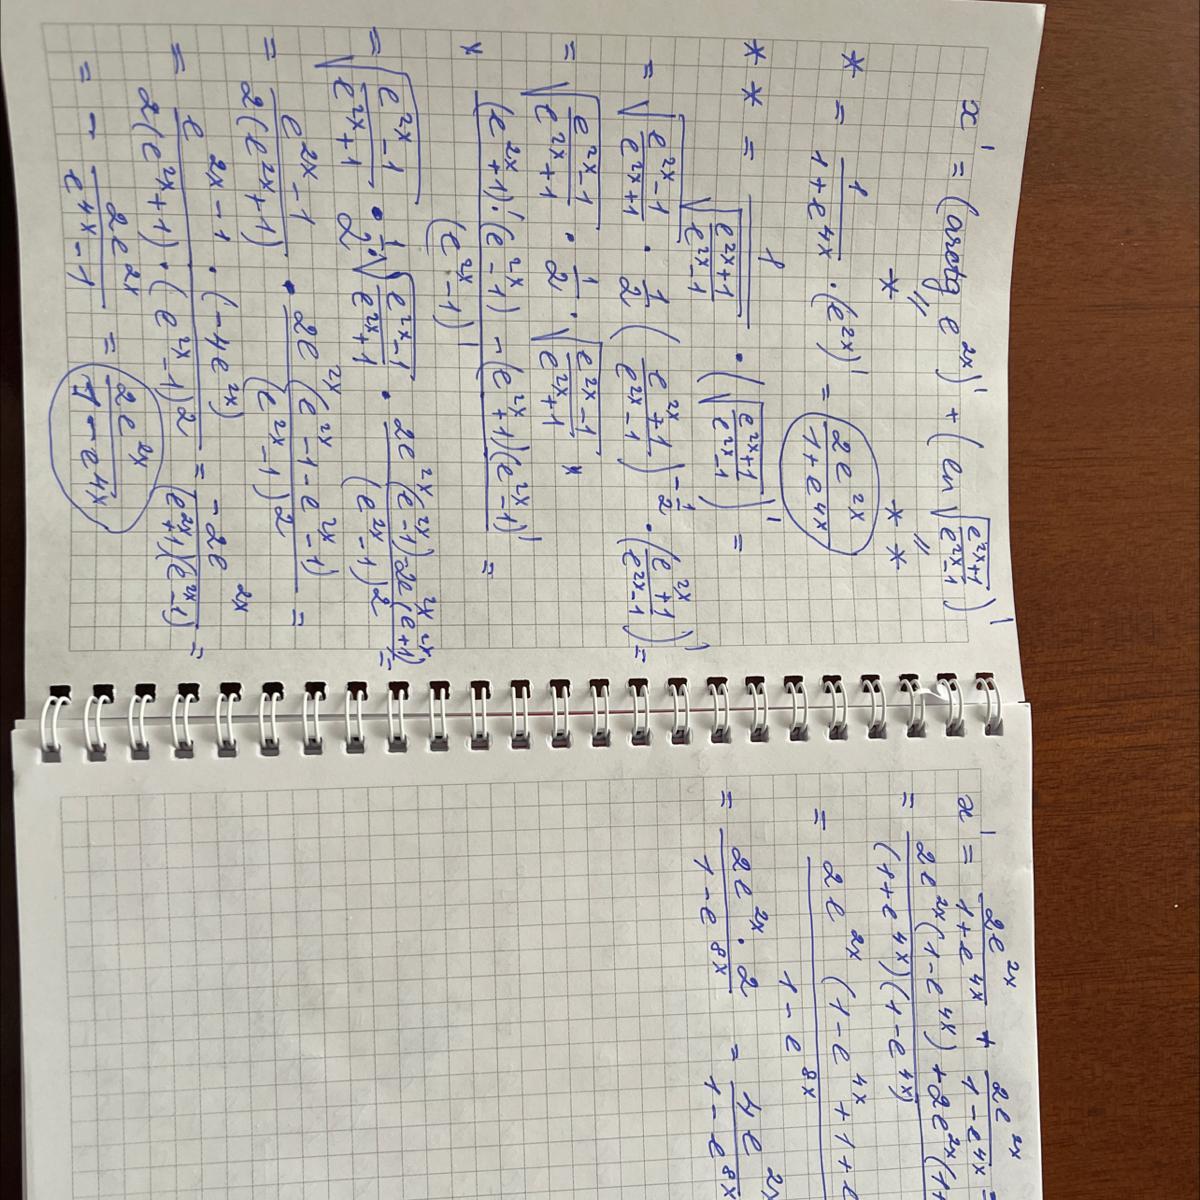 x' = (arctg e^{2x})' + (ln √((e^{2x}+1)/(e^{2x}-1)))'
* **
* = 1/(1+e^{4x}) · (e^{2x})' = 2e^{2x}/(1+e^{4x})
** = 1/√((e^{2x}+1)/(e^{2x}-1)) · (√((e^{2x}+1)/(e^{2x}-1)))' =
= √((e^{2x}-1)/(e^{2x}+1)) · 1/2 ((e^{2x}+1)/(e^{2x}-1))^{-1/2} · ((e^{2x}+1)/(e^{2x}-1))' =
= √((e^{2x}-1)/(e^{2x}+1)) · 1/2 · √((e^{2x}-1)/(e^{2x}+1)) ×
× ((e^{2x}+1)'·(e^{2x}-1) - (e^{2x}+1)(e^{2x}-1)')/(e^{2x}-1)' =
= √((e^{2x}-1)/(e^{2x}+1)) · 1/2 · √((e^{2x}-1)/(e^{2x}+1)) · (2e^{2x}(e^{2x}-1) 2e^{2x}(e^{2x}+1))/(e^{2x}-1)^2 =
= (e^{2x}-1)/(2(e^{2x}+1)) · (2e^{2x}(e^{2x}-1-e^{2x}-1))/(e^{2x}-1)^2 =
= (e^{2x}-1·(-4e^{2x}))/(2(e^{2x}+1)·(e^{2x}-1)^2) = (-2e^{2x})/((e^{2x}+1)(e^{2x}-1)) =
= - 2e^{2x}/(e^{4x}-1) = 2e^{2x}/(1-e^{4x})
x' = 2e^{2x}/(1+e^{4x}) + 2e^{2x}/(1-e^{4x}) =
= (2e^{2x}(1-e^{4x}) + 2e^{2x}(1+)/((1+e^{4x})(1-e^{4x}))
= (2e^{2x}(1-e^{4x}+1+e)/(1-e^{8x})
= (2e^{2x}·2)/(1-e^{8x}) = 4e^{2x}/(1-e^{8x})